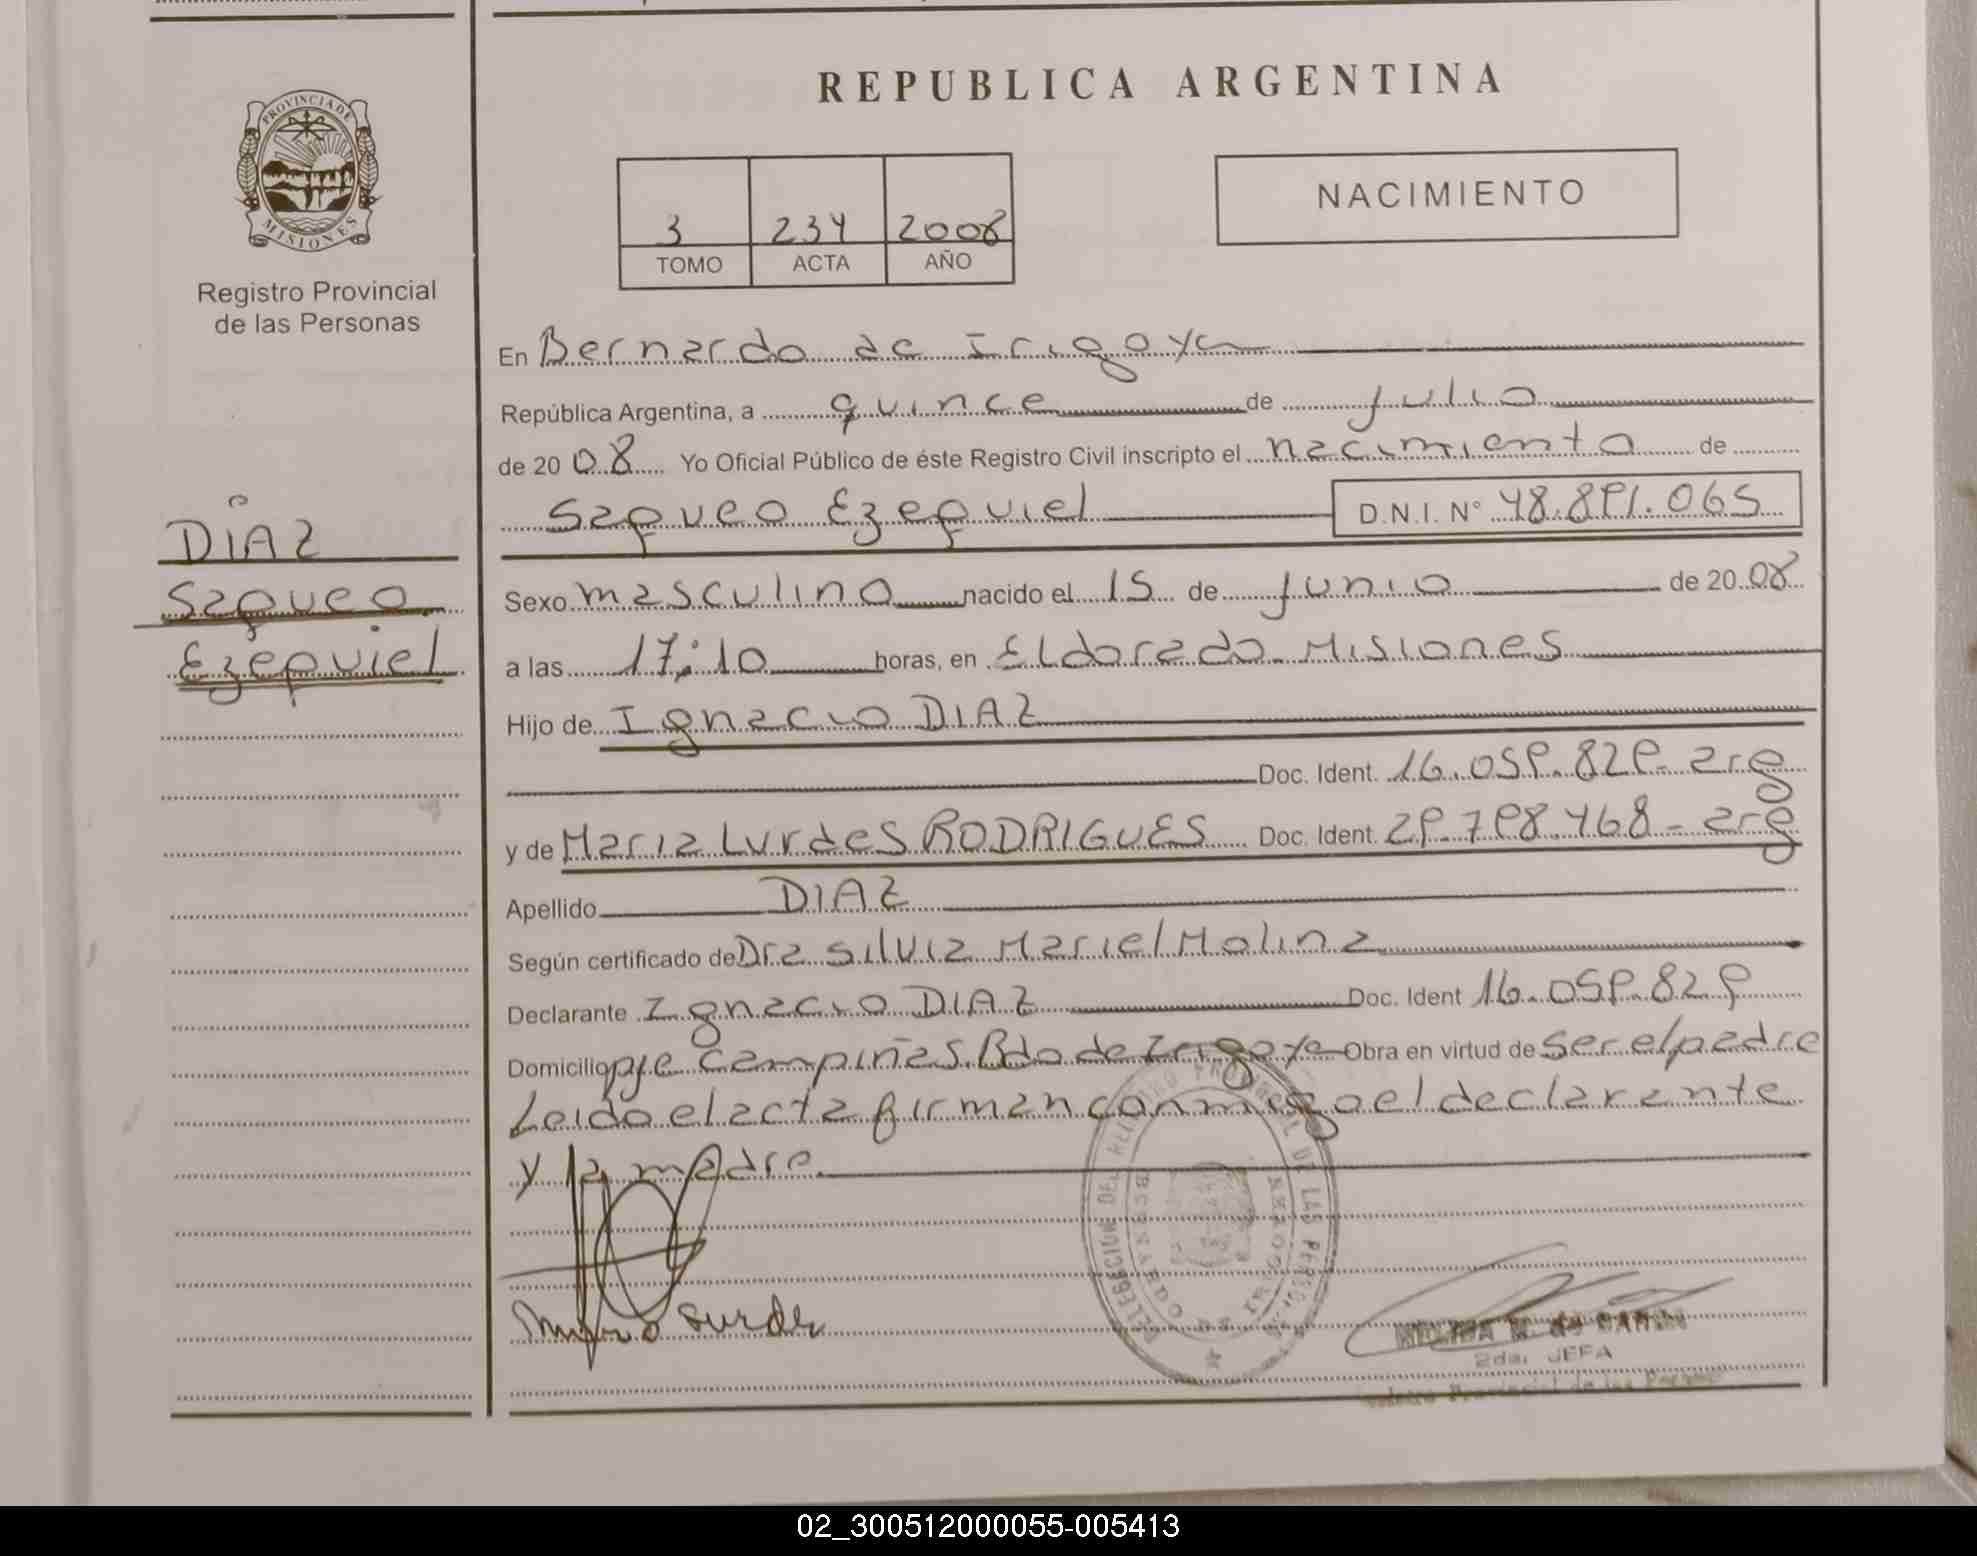 REPUBLICA ARGENTINA
PROVINCIA DE
MISIONES
Registro Provincial
de las Personas
3 234 2008
TOMO ACTA AÑO
NACIMIENTO
En Bernardo de Irigoyen
República Argentina, a quince de Julio
de 2008 Yo Oficial Público de éste Registro Civil inscripto el nacimiento de
Saqueo Ezequiel D.N.I. Nº 48.891.065
DIAZ
Saqueo
Ezequiel
Sexo masculino nacido el 15 de Junio de 2008
a las 17:10 horas, en Eldorado Misiones
Hijo de Ignacio DIAZ
Doc. Ident. 16.059.829 - arg
y de Maria Lurdes RODRIGUES Doc. Ident. 29.798.468 - arg
Apellido DIAZ
Según certificado de Dra Silvia Mariel Molina
Declarante Ignacio DIAZ Doc. Ident 16.059.829
Domicilio pje Campiñas Bdo de Irigoye Obra en virtud de ser el padre
Leido el acta firman conmigo el declarante
y la madre.
DE LAS
2da. JEFA
02_300512000055-005413